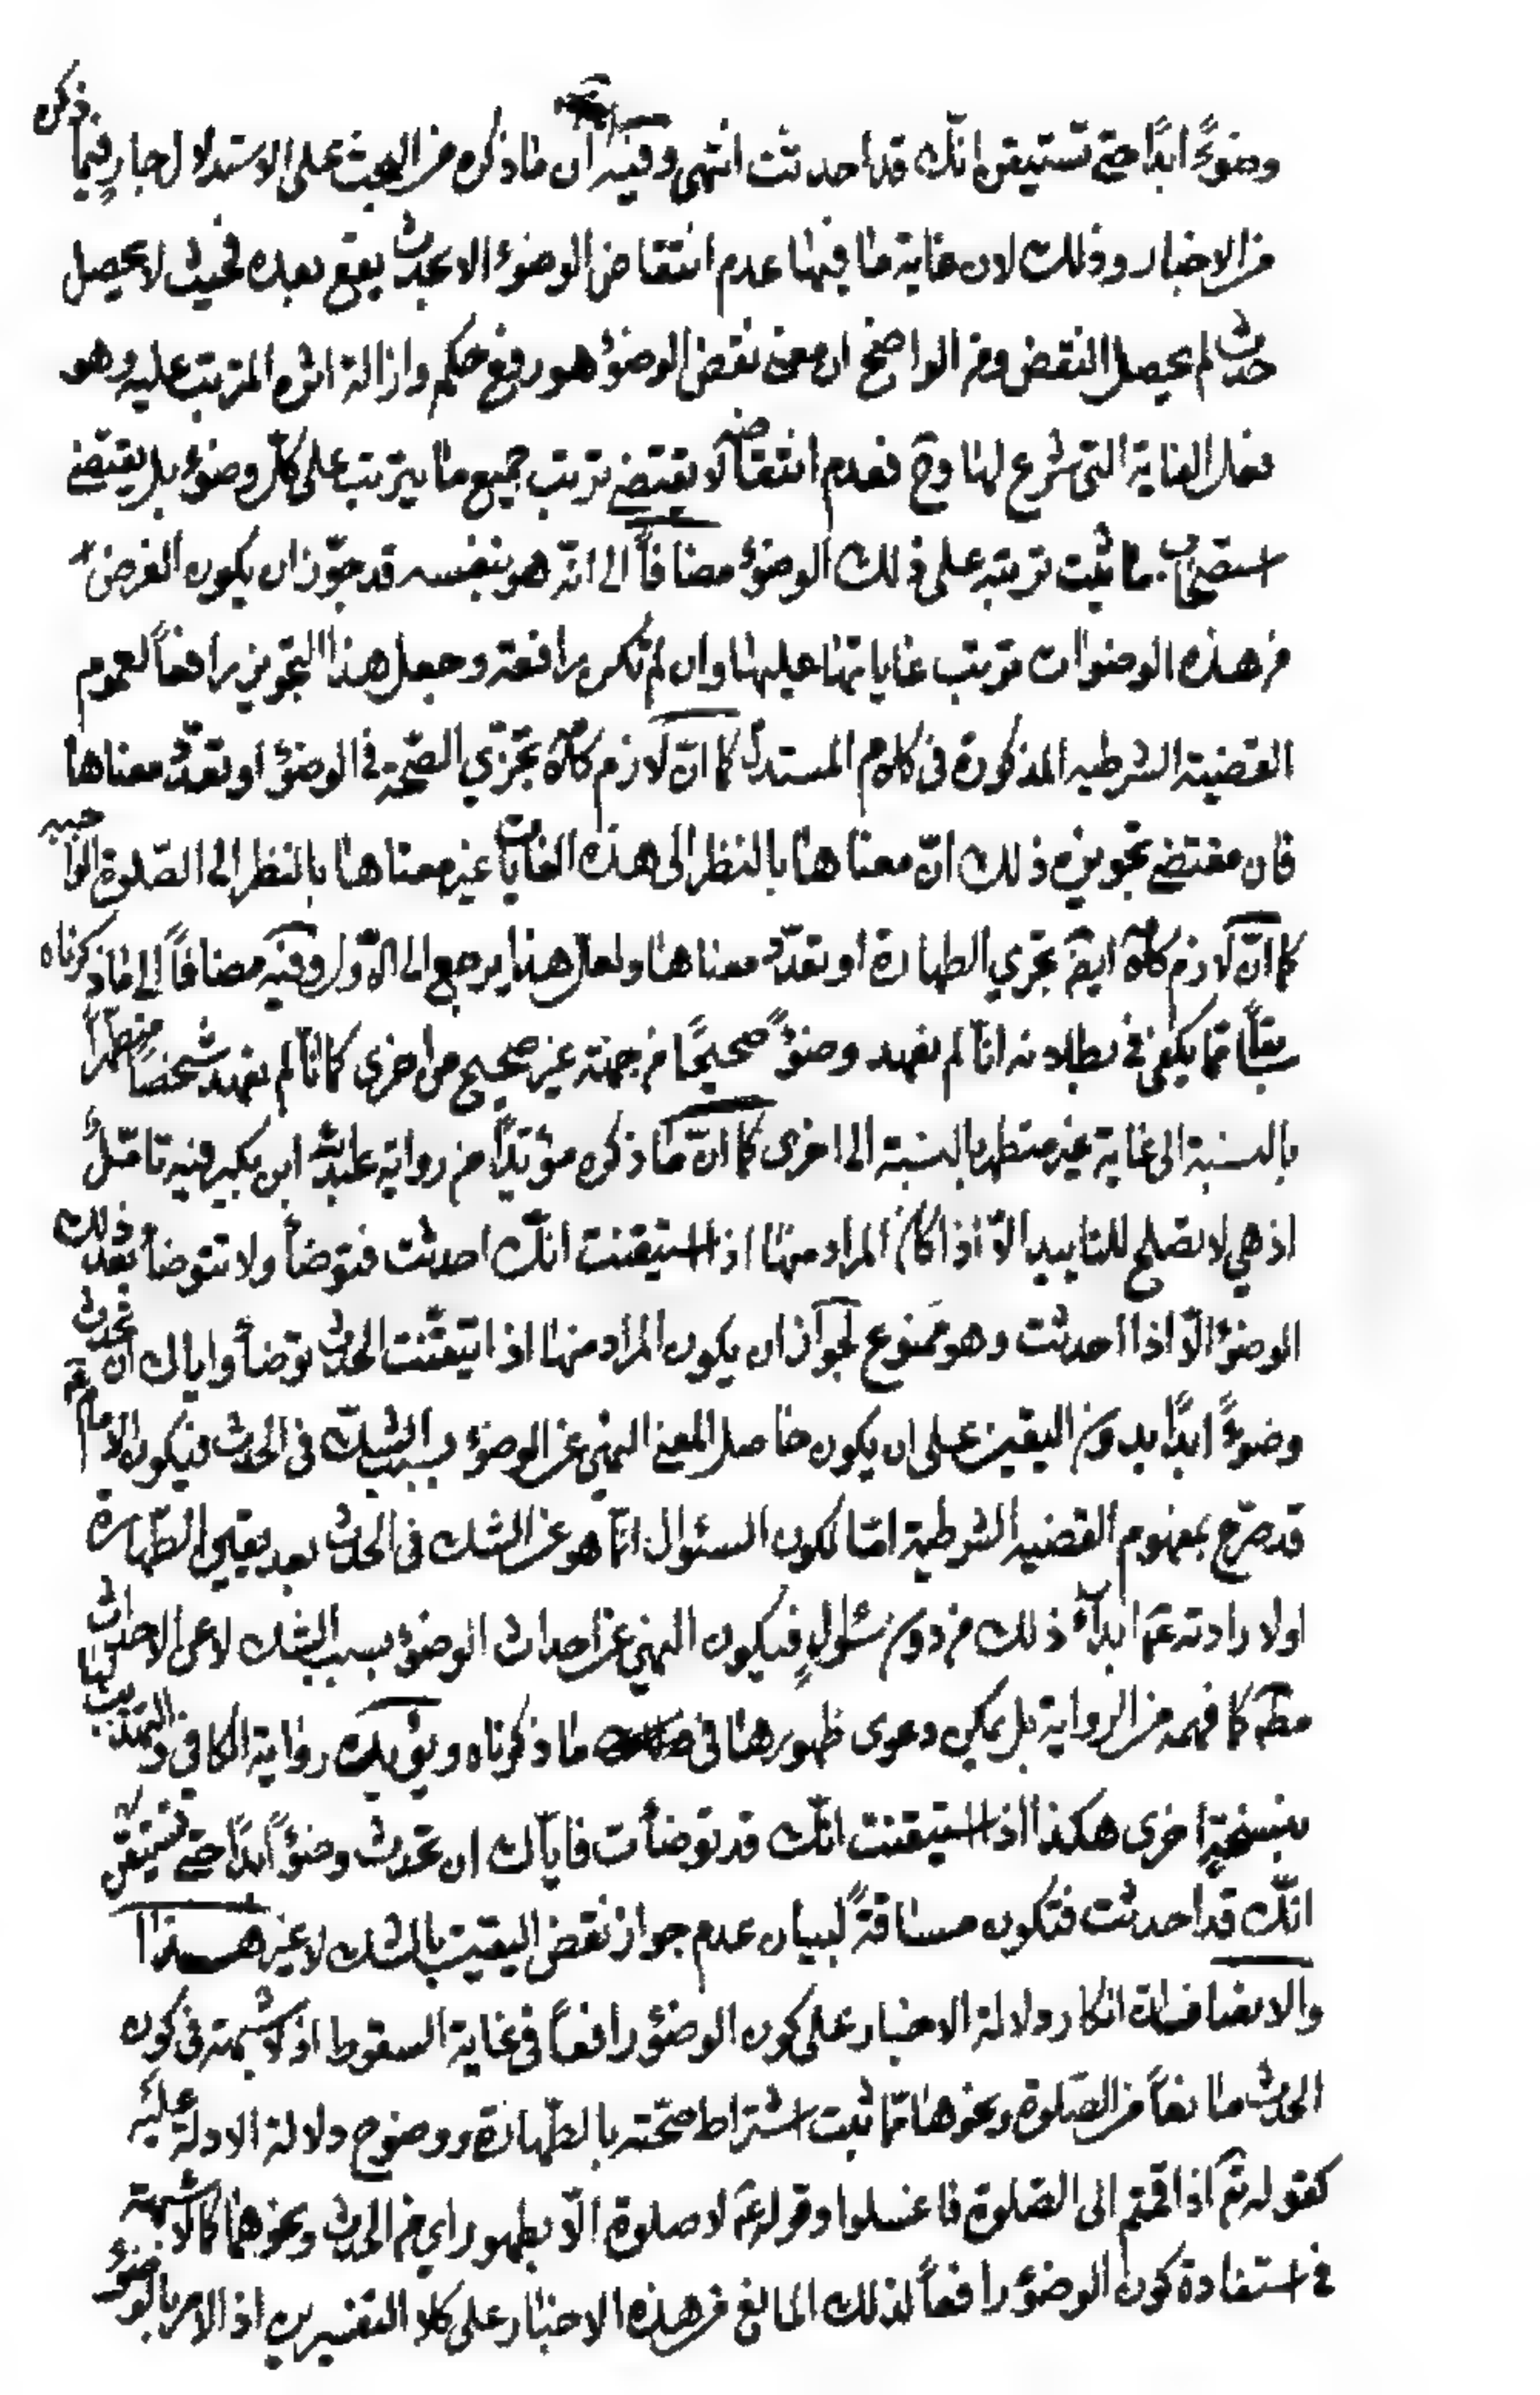 وضوءً ابدًا حتى تستيقن انّك قد احدثت انتهى وفيه ان ما ذكره من البحث على الاستدلال جارٍ فيما ذكره
من الاخبار وذلك لان غاية ما فيها عدم انتقاض الوضوء الا بحدث يقع بعده فحيث لا يحصل
حدث لم يحصل النقض ومن الواضح ان معنى نقض الوضوء هو رفع حكمه وازالة اثره المترتب عليه وهو
فعل الغاية التى شرع لها وح فعدم انتقاضه لا يقتضي ترتب جميع ما يترتب على كل وضوء بل يقتضي
استصحاب ما ثبت ترتبه على ذلك الوضوء مضافاً الى انّه هو بنفسه قد جوّز ان يكون الغرض
من هذه الوضوات ترتب غاياتها عليها وان لم تكن رافعة وجعل هذا التجويز رافعاً لعموم
القضية الشرطيه المذكورة فى كلام المستدل كما انّ لازم كلامه تجزّي الصّحة في الوضوء او تعدّد معناها
فان مقتضى تجويزه ذلك انّ معناها بالنظر الى هذه الغايات غير معناها بالنظر الى الصّلوة الواجبه
كما انّ لازم كلامه ايضً تجزي الطهارة او تعدّد معناها ولعل هذا يرجع الى الاوّل وفيه مضافاً الى ما ذكرناه
سابقاً مما يكفى في بطلانه انا لم نعهد وضوءً صحيحًا من جهة غير صحيح من اخرى كما انا لم نعهد شخصاً متطهّراً
بالنسبة الى غاية غير متطهر بالنسبة الى اخرى كما انّ ما ذكره مؤيّداً من رواية عبدالله ابن بكير فيه تامّل
اذ هي لا تصلح للتاييد الّا اذا كان المراد منها اذا استيقنت انّك احدثت فتوضأ ولا تتوضأ بعد ذلك
الوضوء الّا اذا احدثت وهو ممنوع لجواز ان يكون المراد منها اذا تيقّنت الحدث توضأ واياك ان تحدث
وضوءً ابدًا بدون اليقين على ان يكون حاصل المعنى النهي عن الوضوء بسبب الشكّ فى الحدث فيكون الامام عم
قد صرّح بمفهوم القضيه الشرطية امّا لكون السئوال انّما هو عن الشك فى الحدث بعد يقين الطّهارة
او لارادته عم ابداء ذلك من دون سئوالٍ فيكون النهي عن احداث الوضوء بسبب الشك لا عن الاحداث
مطم كما فهمه من الرواية بل يمكن دعوى ظهورها فى ما ذكرناه ويؤيدك رواية الكافي والتهذيب لها
بنسخةٍ اخرى هكذا اذا استيقنت انّك قد توضأت فاياك ان تحدث وضوءاً ابدًا حتى تستيقن
انّك قد احدثت فتكون مساقةً لبيان عدم جواز نقض اليقين بالشك لا غير هـــذا
والانصاف ان انكار دلالة الاخبار على كون الوضوء رافعاً فى غاية السقوط اذ لا شبهة فى كون
الحدث مانعاً من الصّلوة ونحوها ممّا ثبت اشتراط صحّته بالطّهارة ووضوح دلالة الادلّة عليه
كقوله تع اذا قمتم الى الصّلوة فاغسلوا وقوله عم لا صلوة الّا بطهور اي من الحدث ونحوهما كما لا شبهة
في استفادة كون الوضوء رافعاً لذلك المانع من هذه الاخبار على كلا التفسيرين اذ الامر بالوضوء